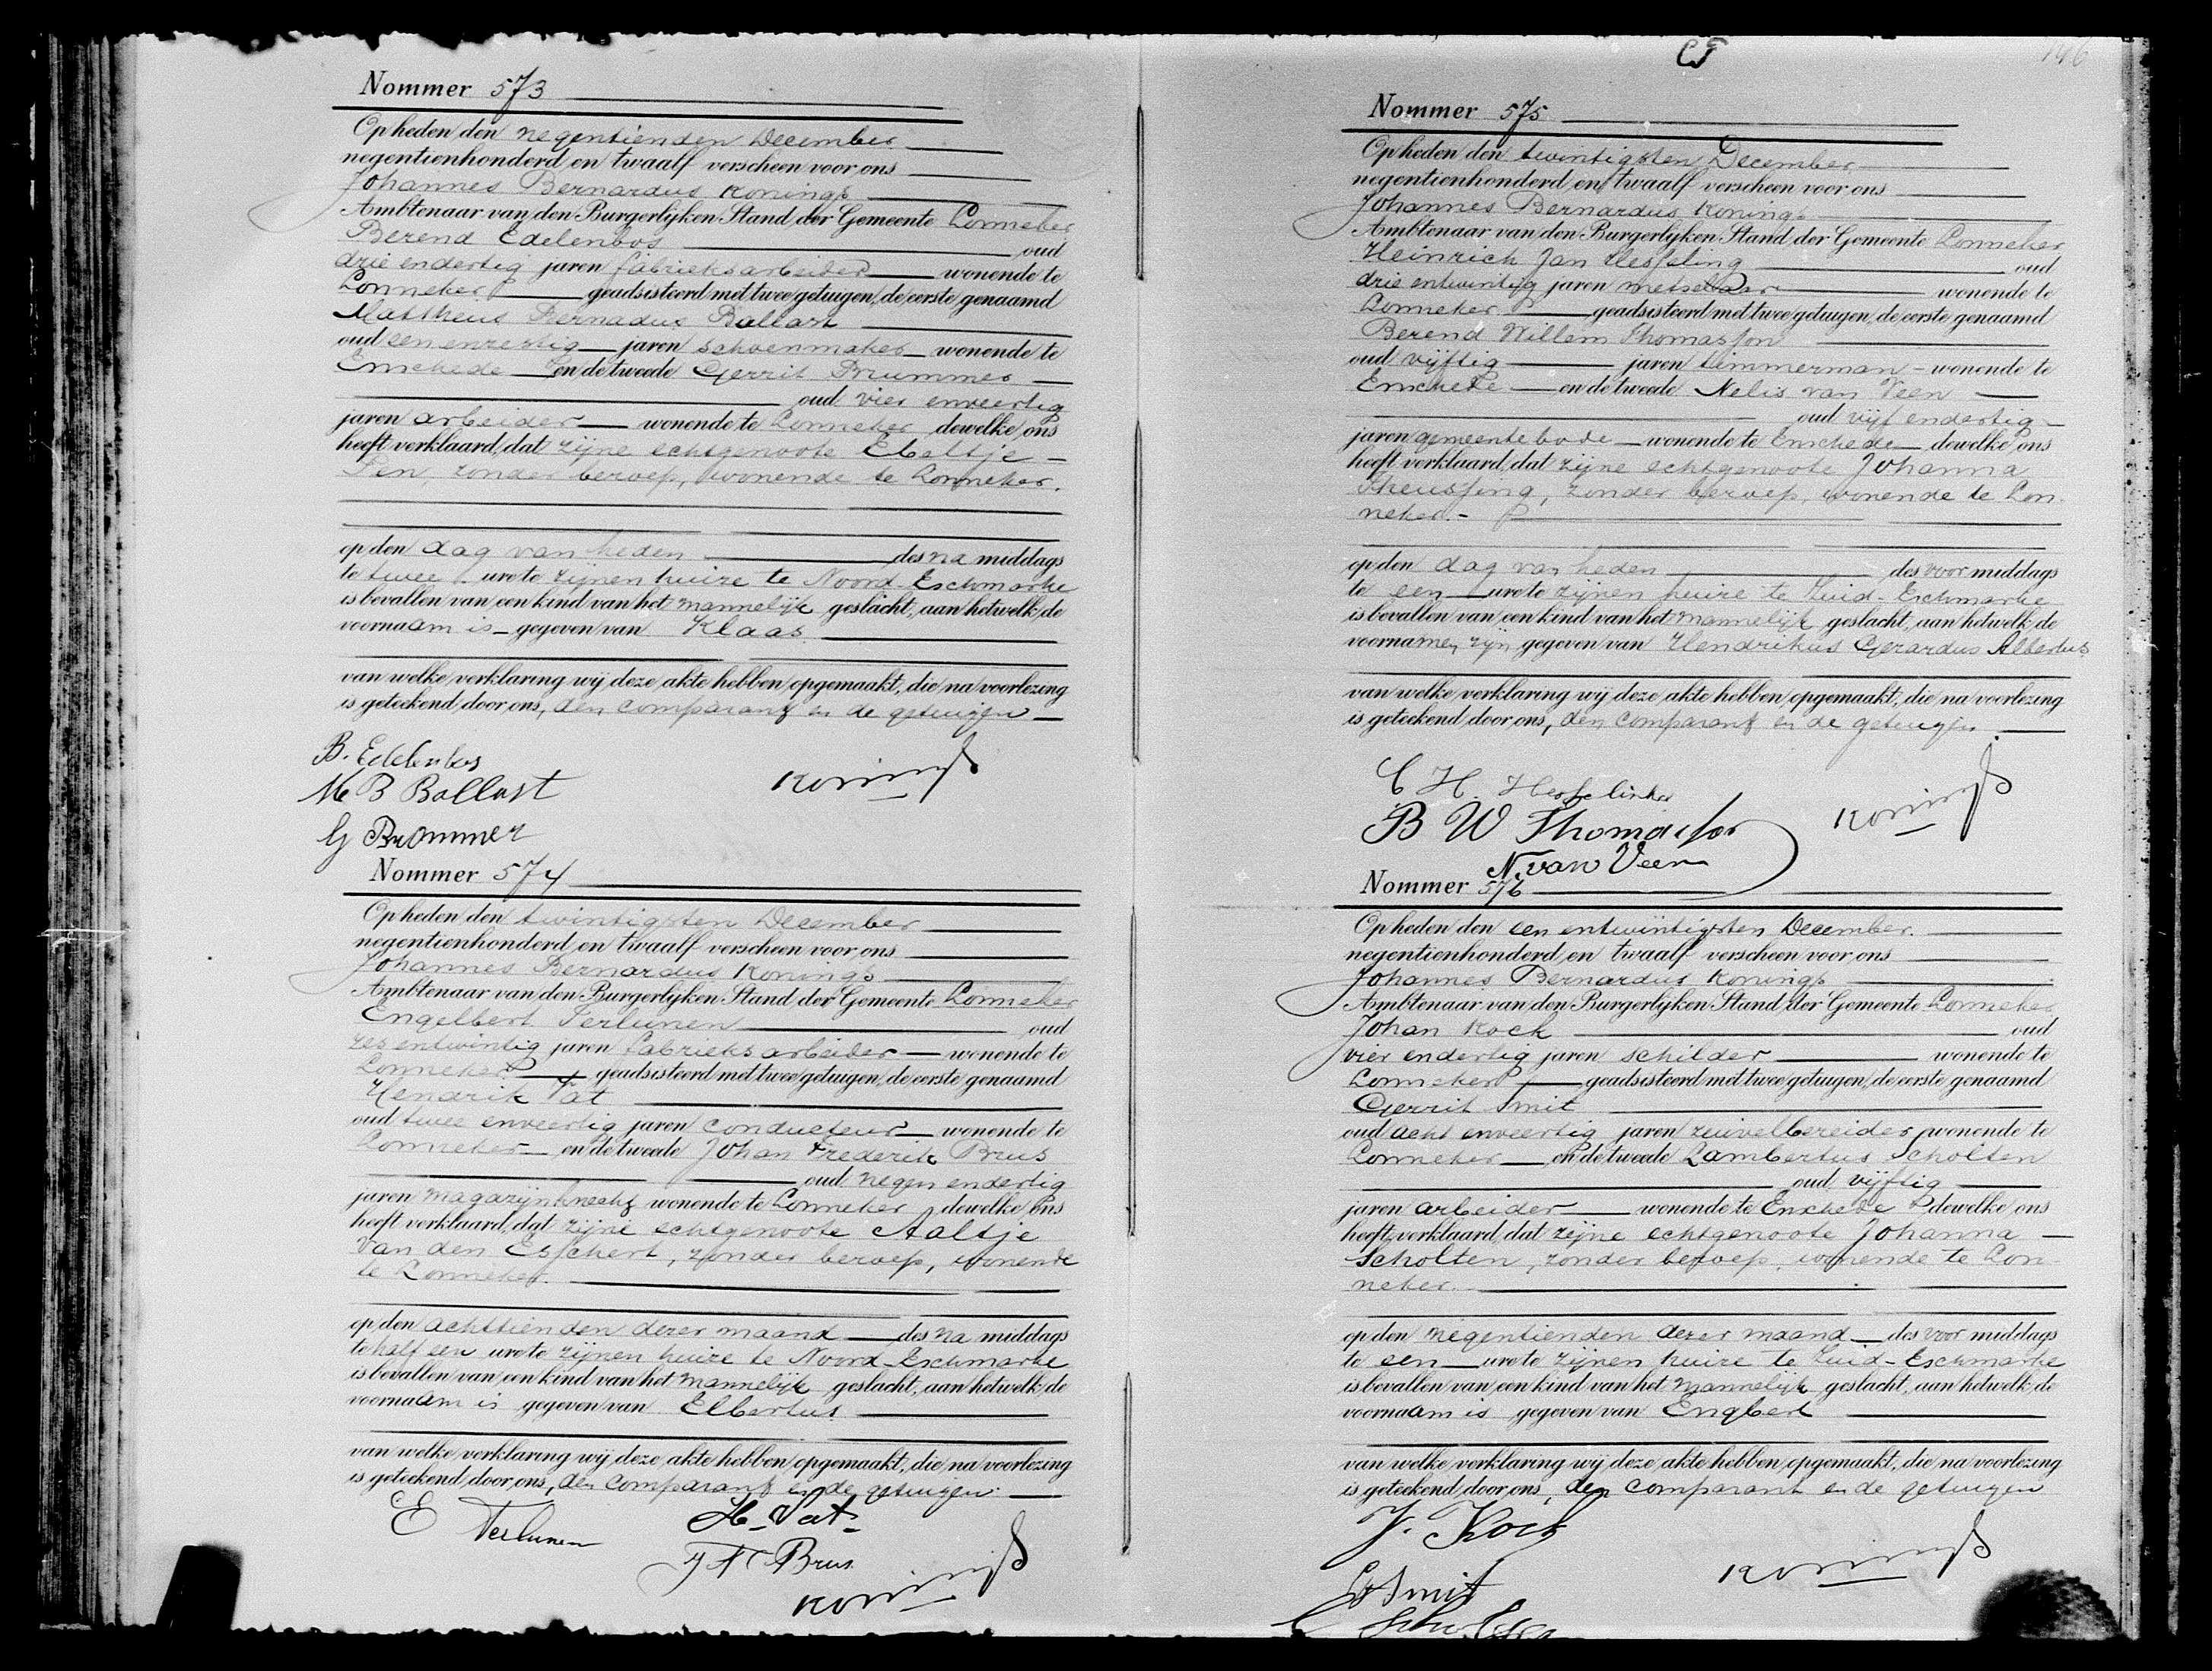 Nommer 573
Op heden den negentienden December
negentienhonderd en twaalf verscheen voor ons
Johannes Bernardus Konings
Ambtenaar van den Burgerlijken Stand der Gemeente Lonneker
Berend Edelenbos oud
drie endertig jaren fabrieksarbeider wonende te
Lonneker geadsisteerd met twee getuigen, de eerste genaamd
Mattheus Bernadus Ballast
oud een enveertig jaren schoenmaker wonende te
Enschede en de tweede Gerrit Brummer
oud vier enveertig
jaren arbeider wonende te Lonneker dewelke ons
heeft verklaard, dat zijne echtgenoote Ebeltje
Pen, zonder beroep, wonende te Lonneker.
op den dag van heden des na middags
te twee ure te zijnen huize te Noord-Eschmarke
is bevallen van een kind van het mannelijk geslacht, aan hetwelk de
voornaam is gegeven van Klaas
van welke verklaring wij deze akte hebben opgemaakt, die na voorlezing
is geteekend door ons, den comparant en de getuigen
B. Edelenbos
M B Ballast Konings
G Brommer
Nommer 574
Op heden den twintigsten December
negentienhonderd en twaalf verscheen voor ons
Johannes Bernardus Konings
Ambtenaar van den Burgerlijken Stand der Gemeente Lonneker
Engelbert Terlunen oud
zes entwintig jaren fabrieksarbeider wonende te
Lonneker geadsisteerd met twee getuigen, de eerste genaamd
Hendrik Vat
oud twee enveertig jaren conducteur wonende te
Lonneker en de tweede Johan Frederik Brus
oud negen endertig
jaren magazijnknecht wonende te Lonneker dewelke ons
heeft verklaard, dat zijne echtgenoote Aaltje
van den Esschert, zonder beroep, wonende
te Lonneker.
op den achttienden dezer maand des na middags
te half een ure te zijnen huize te Noord-Eschmarke
is bevallen van een kind van het mannelijk geslacht, aan hetwelk de
voornaam is gegeven van Elbertus
van welke verklaring wij deze akte hebben opgemaakt, die na voorlezing
is geteekend door ons, den comparant en de getuigen.
E Terlunen H. Vat
J F Brus
Konings
146
Nommer 575
Op heden den twintigsten December
negentienhonderd en twaalf verscheen voor ons
Johannes Bernardus Konings
Ambtenaar van den Burgerlijken Stand der Gemeente Lonneker
Heinrich Jan oud
drie entwintig jaren metselaar wonende te
Lonneker geadsisteerd met twee getuigen, de eerste genaamd
Berend Willem Thomasson
oud vijftig jaren timmerman wonende te
Enschede en de tweede Nelis van Veen
oud vijf endertig
jaren gemeentebode wonende te Enschede dewelke ons
heeft verklaard, dat zijne echtgenoote Johanna
Theussing, zonder beroep, wonende te Lon
neker.
op den dag van heden des voor middags
te een ure te zijnen huize te Zuid-Eschmarke
is bevallen van een kind van het mannelijk geslacht, aan hetwelk de
voornamen zijn gegeven van Hendrikus Gerardus Albertus
van welke verklaring wij deze akte hebben opgemaakt, die na voorlezing
is geteekend door ons, den comparant en de getuigen.
B W Thomasson Konings
N. van Veen
Nommer 576
Op heden den een entwintigsten December.
negentienhonderd en twaalf verscheen voor ons
Johannes Bernardus Konings
Ambtenaar van den Burgerlijken Stand der Gemeente Lonneker
Johan Kock oud
vier endertig jaren schilder wonende te
Lonneker geadsisteerd met twee getuigen, de eerste genaamd
Gerrit Smit
oud acht enveertig jaren zuivelbereider wonende te
Lonneker en de tweede Lambertus Scholten
oud vijftig
jaren arbeider wonende te Enschede dewelke ons
heeft verklaard, dat zijne echtgenoote Johanna
Scholten, zonder beroep, wonende te Lon
neker.
op den negentienden dezer maand des voor middags
te een ure te zijnen huize te Zuid-Eschmarke
is bevallen van een kind van het mannelijk geslacht, aan hetwelk de
voornaam is gegeven van Engbert
van welke verklaring wij deze akte hebben opgemaakt, die na voorlezing
is geteekend door ons, den comparant en de getuigen
J. Kock
Konings
G Smit
L Scholten